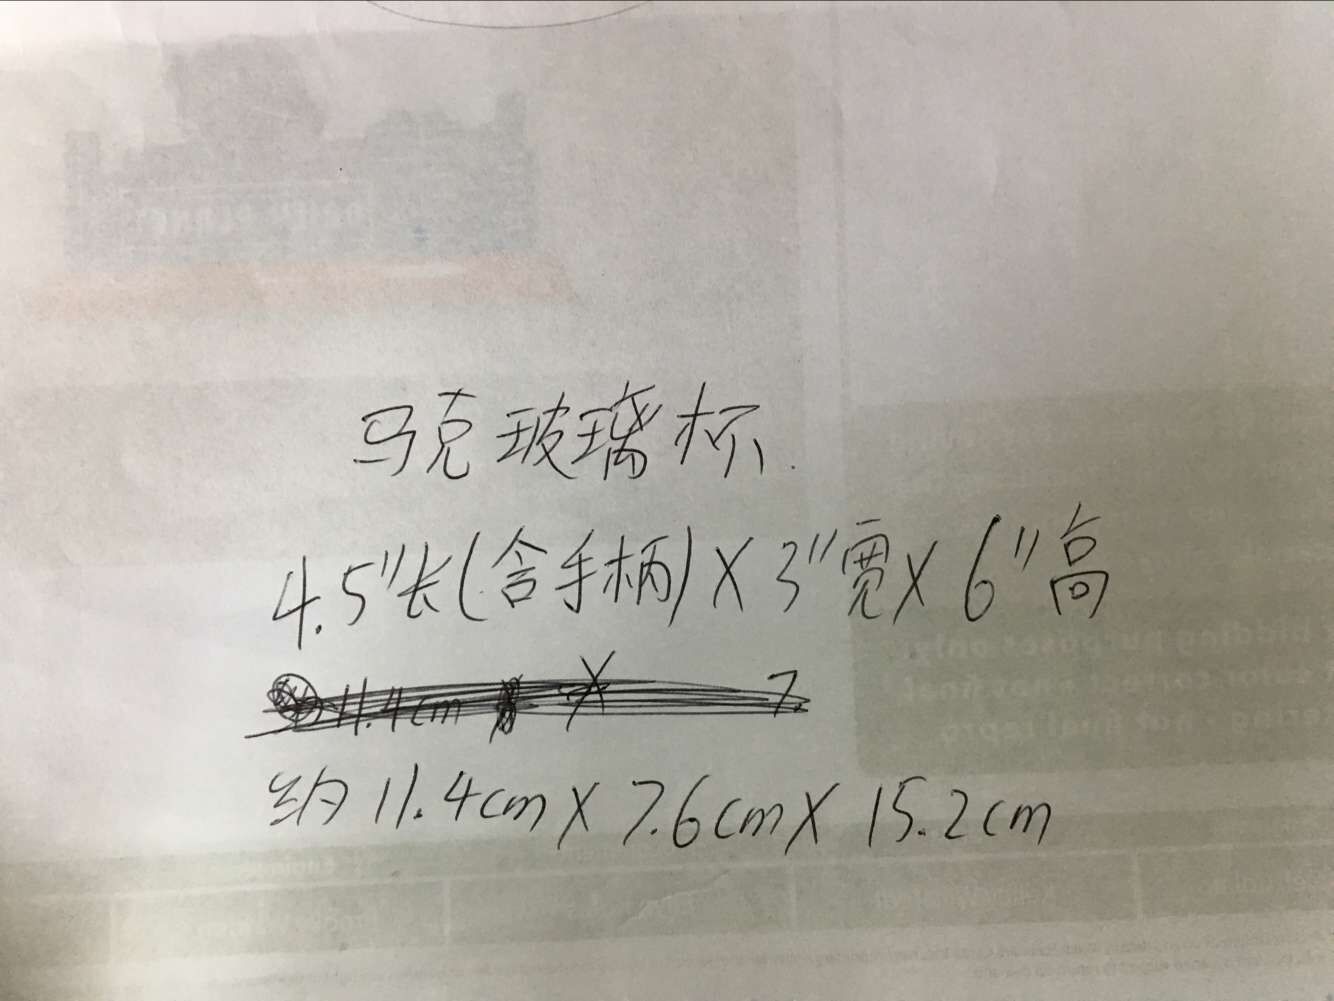 马克玻璃杯.
4.5"长(含手柄) X 3"宽 X 6"高
11.4cm X 7.
约 11.4cm X 7.6cm X 15.2cm